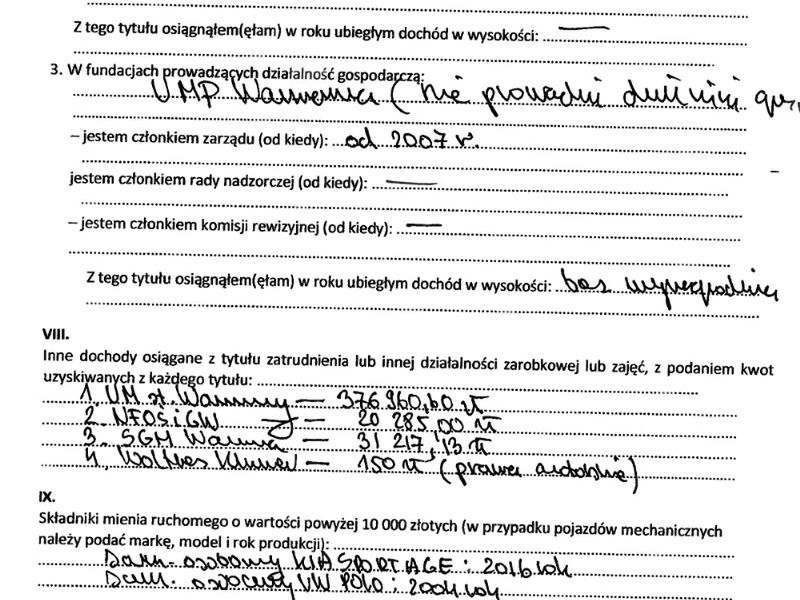 Z tego tytułu osiągnąłem(ęłam) w roku ubiegłym dochód w wysokości: —
3. W fundacjach prowadzących działalność gospodarczą:
UMP Warszawa (nie prowadzi
– jestem członkiem zarządu (od kiedy): od 2007 r.
jestem członkiem rady nadzorczej (od kiedy): —
– jestem członkiem komisji rewizyjnej (od kiedy): —
Z tego tytułu osiągnąłem(ęłam) w roku ubiegłym dochód w wysokości: bez wynagrodzenia
VIII.
Inne dochody osiągane z tytułu zatrudnienia lub innej działalności zarobkowej lub zajęć, z podaniem kwot
uzyskiwanych z każdego tytułu:
1. UM st. Warszawy — 376 960,60 zł
2. NFOŚiGW — 20 285,00 zł
3. SGH Warszawa — 31 217,13 zł
4. Wolters Kluwer — 150 zł (prawa autorskie)
IX.
Składniki mienia ruchomego o wartości powyżej 10 000 złotych (w przypadku pojazdów mechanicznych
należy podać markę, model i rok produkcji):
Sam. osobowy KIA SPORTAGE : 2016 rok
Sam. osobowy VW POLO : 2004 rok